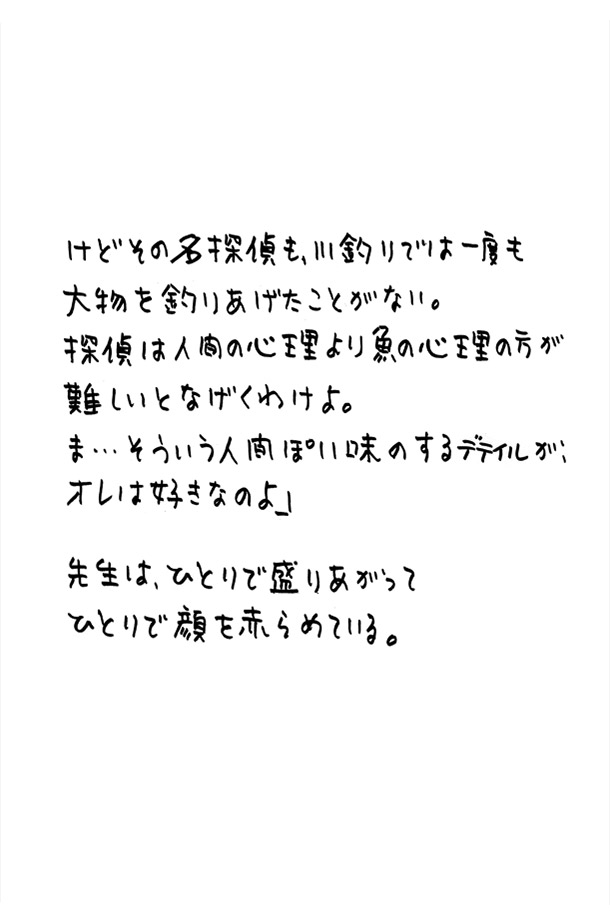 けどその名探偵も、川釣りでは一度も
大物を釣りあげたことがない。
探偵は人間の心理より魚の心理の方が
難しいとなげくわけよ。
ま…そういう人間ぽい味のするデテイルが、
オレは好きなのよ」
先生は、ひとりで盛りあがって
ひとりで顔を赤らめている。